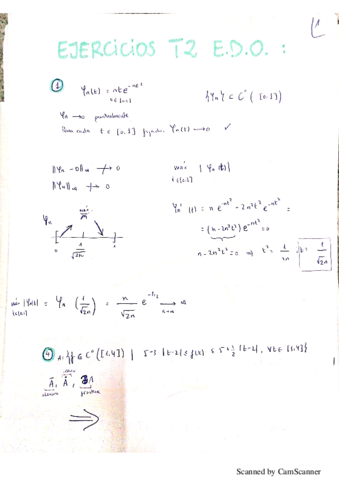 1
EJERCICIOS T2 E.D.O. :
① φn(t) = nte^{-nt²}
t∈[0,1]
{φn} ⊂ C([0,1])
φn → 0 puntualmente
Para cada t ∈ [0,1] fijado, φn(t) → 0 ✓
||φn - 0||∞ ↛ 0
||φn||∞ ↛ 0
máx |φn(t)|
t∈[0,1]
φn'(t) = n e^{-nt²} - 2n²t² e^{-nt²} =
= (n - 2n²t²) e^{-nt²} = 0
n - 2n²t² = 0 ⇒ t² = 1/2n, t = 1/√2n
φn
máx
0
1/√2n
1
máx |φn(t)| = φn (1/√2n) = n/√2n e^{-1/2} → ∞
t∈[0,1]
n→∞
④ A = {f ∈ C([1,4]) | 5-3|t-2| ≤ f(t) ≤ 5+1/2|t-2|, ∀t∈[1,4]}
Ā, Å, ∂A
frontera
⇒
Scanned by CamScanner